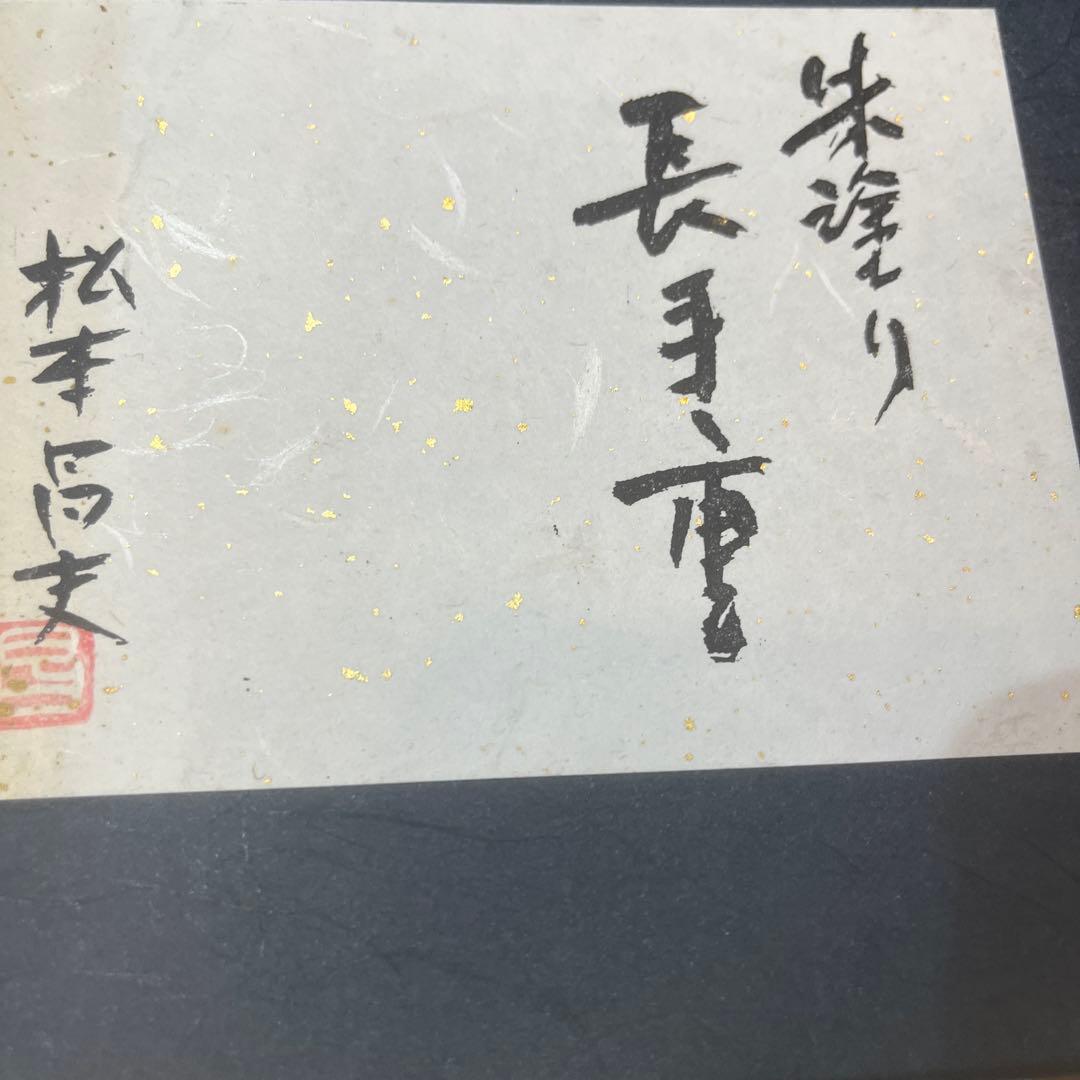 朱塗り
長手重
松本昌夫